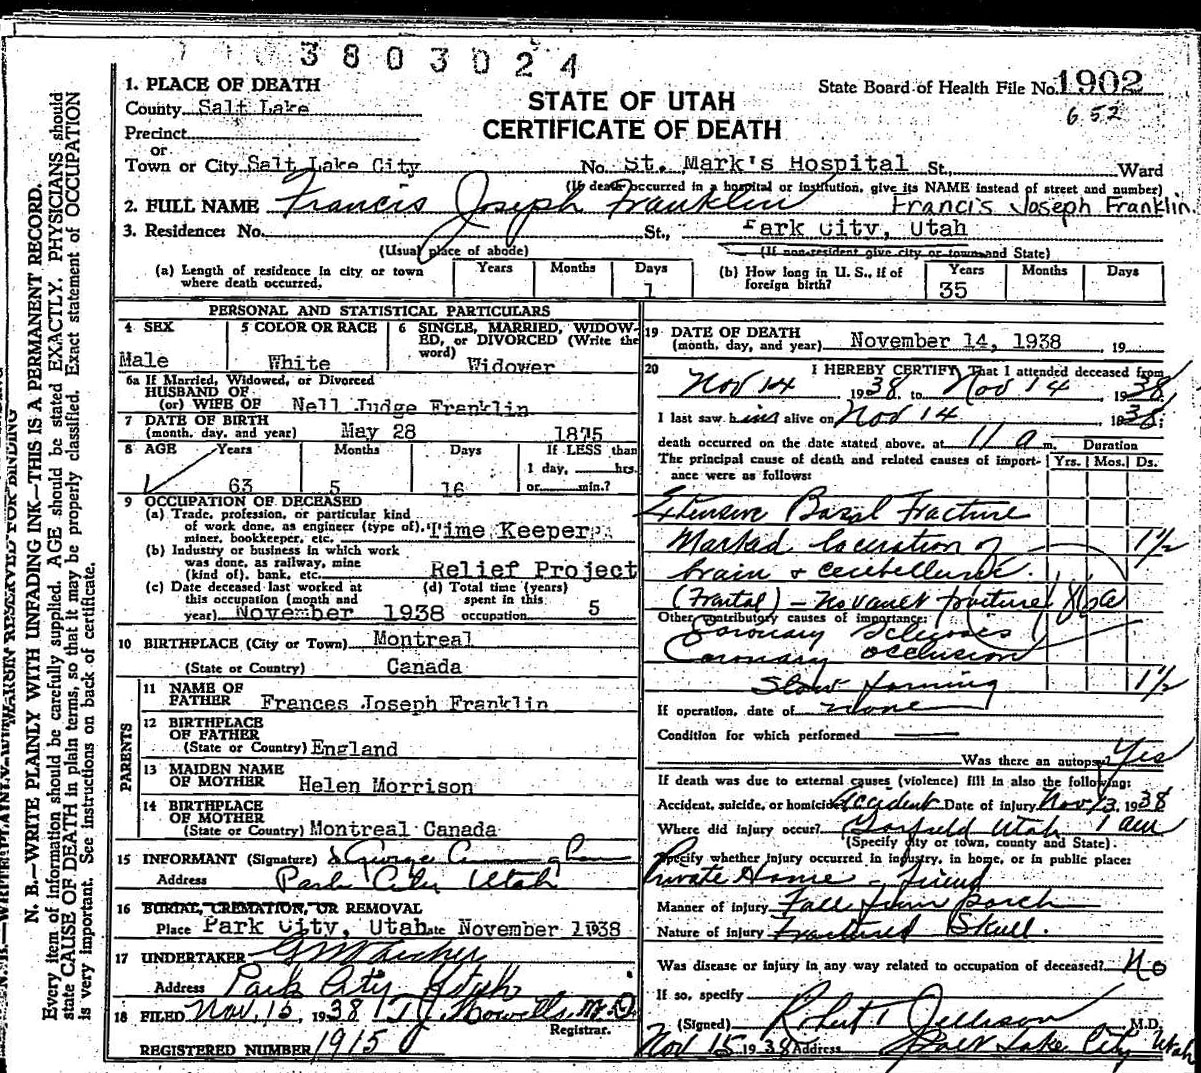 3803024
State Board of Health File No. 1902
6 52
STATE OF UTAH
CERTIFICATE OF DEATH
1. PLACE OF DEATH
County Salt Lake
Precinct
or
Town or City Salt Lake City No. St. Mark's Hospital St., Ward
(If death occurred in a hospital or institution, give its NAME instead of street and number)
2. FULL NAME Francis Joseph Franklin Francis Joseph Franklin.
3. Residence: No. St., Park City, Utah
(Usual place of abode) (If non-resident give city or town and State)
(a) Length of residence in city or town where death occurred. Years Months Days 1
(b) How long in U. S., if of foreign birth? Years 35 Months Days
PERSONAL AND STATISTICAL PARTICULARS
4 SEX Male
5 COLOR OR RACE White
6 SINGLE, MARRIED, WIDOWED, or DIVORCED (Write the word) Widower
6a If Married, Widowed, or Divorced
HUSBAND OF
(or) WIFE OF Nell Judge Franklin
7 DATE OF BIRTH
(month, day, and year) May 28 1875
8 AGE Years 63 Months 5 Days 16 If LESS than 1 day, hrs. or min.?
9 OCCUPATION OF DECEASED
(a) Trade, profession, or particular kind of work done, as engineer (type of), miner, bookkeeper, etc. Time Keeper
(b) Industry or business in which work was done, as railway, mine (kind of), bank, etc. Relief Project
(c) Date deceased last worked at this occupation (month and year) November 1938
(d) Total time (years) spent in this occupation 5
10 BIRTHPLACE (City or Town) Montreal
(State or Country) Canada
PARENTS
11 NAME OF FATHER Frances Joseph Franklin
12 BIRTHPLACE OF FATHER
(State or Country) England
13 MAIDEN NAME OF MOTHER Helen Morrison
14 BIRTHPLACE OF MOTHER
(State or Country) Montreal Canada
15 INFORMANT (Signature) George
Address Park City Utah
16 BURIAL, CREMATION, OR REMOVAL
Place Park City, Utah Date November 1938
17 UNDERTAKER
Address Park City Utah
18 FILED Nov. 15, 1938 T J. Howells, M.D.
Registrar.
REGISTERED NUMBER 1915
19 DATE OF DEATH
(month, day, and year) November 14, 1938 , 19
20 I HEREBY CERTIFY, That I attended deceased from
Nov 14 1938, to Nov 14 1938
I last saw him alive on Nov 14 1938;
death occurred on the date stated above, at 11 a m. Duration
The principal cause of death and related causes of importance were as follows: Yrs. Mos. Ds.
Extensive Basal Fracture
Marked laceration of 1½
brain & cerebellum.
(Frontal) fracture 186a
Other contributory causes of importance:
Coronary Sclerosis
Coronary occlusion
Slow forming 1½
If operation, date of none
Condition for which performed
Was there an autopsy? Yes
If death was due to external causes (violence) fill in also the following:
Accident, suicide, or homicide Accident Date of injury Nov 13, 1938
Where did injury occur? Garfield Utah 1 am
(Specify city or town, county and State).
Specify whether injury occurred in industry, in home, or in public place:
Private Home - friend
Manner of injury Fall from porch
Nature of injury Fractured Skull.
Was disease or injury in any way related to occupation of deceased? No
If so, specify
(Signed) Robert T Jellison M.D.
Nov 15 1938 Address Salt Lake City Utah
N. B.—WRITE PLAINLY WITH UNFADING INK—THIS IS A PERMANENT RECORD.
Every item of information should be carefully supplied. AGE should be stated EXACTLY. PHYSICIANS should
state CAUSE OF DEATH in plain terms, so that it may be properly classified. Exact statement of OCCUPATION
is very important. See instructions on back of certificate.